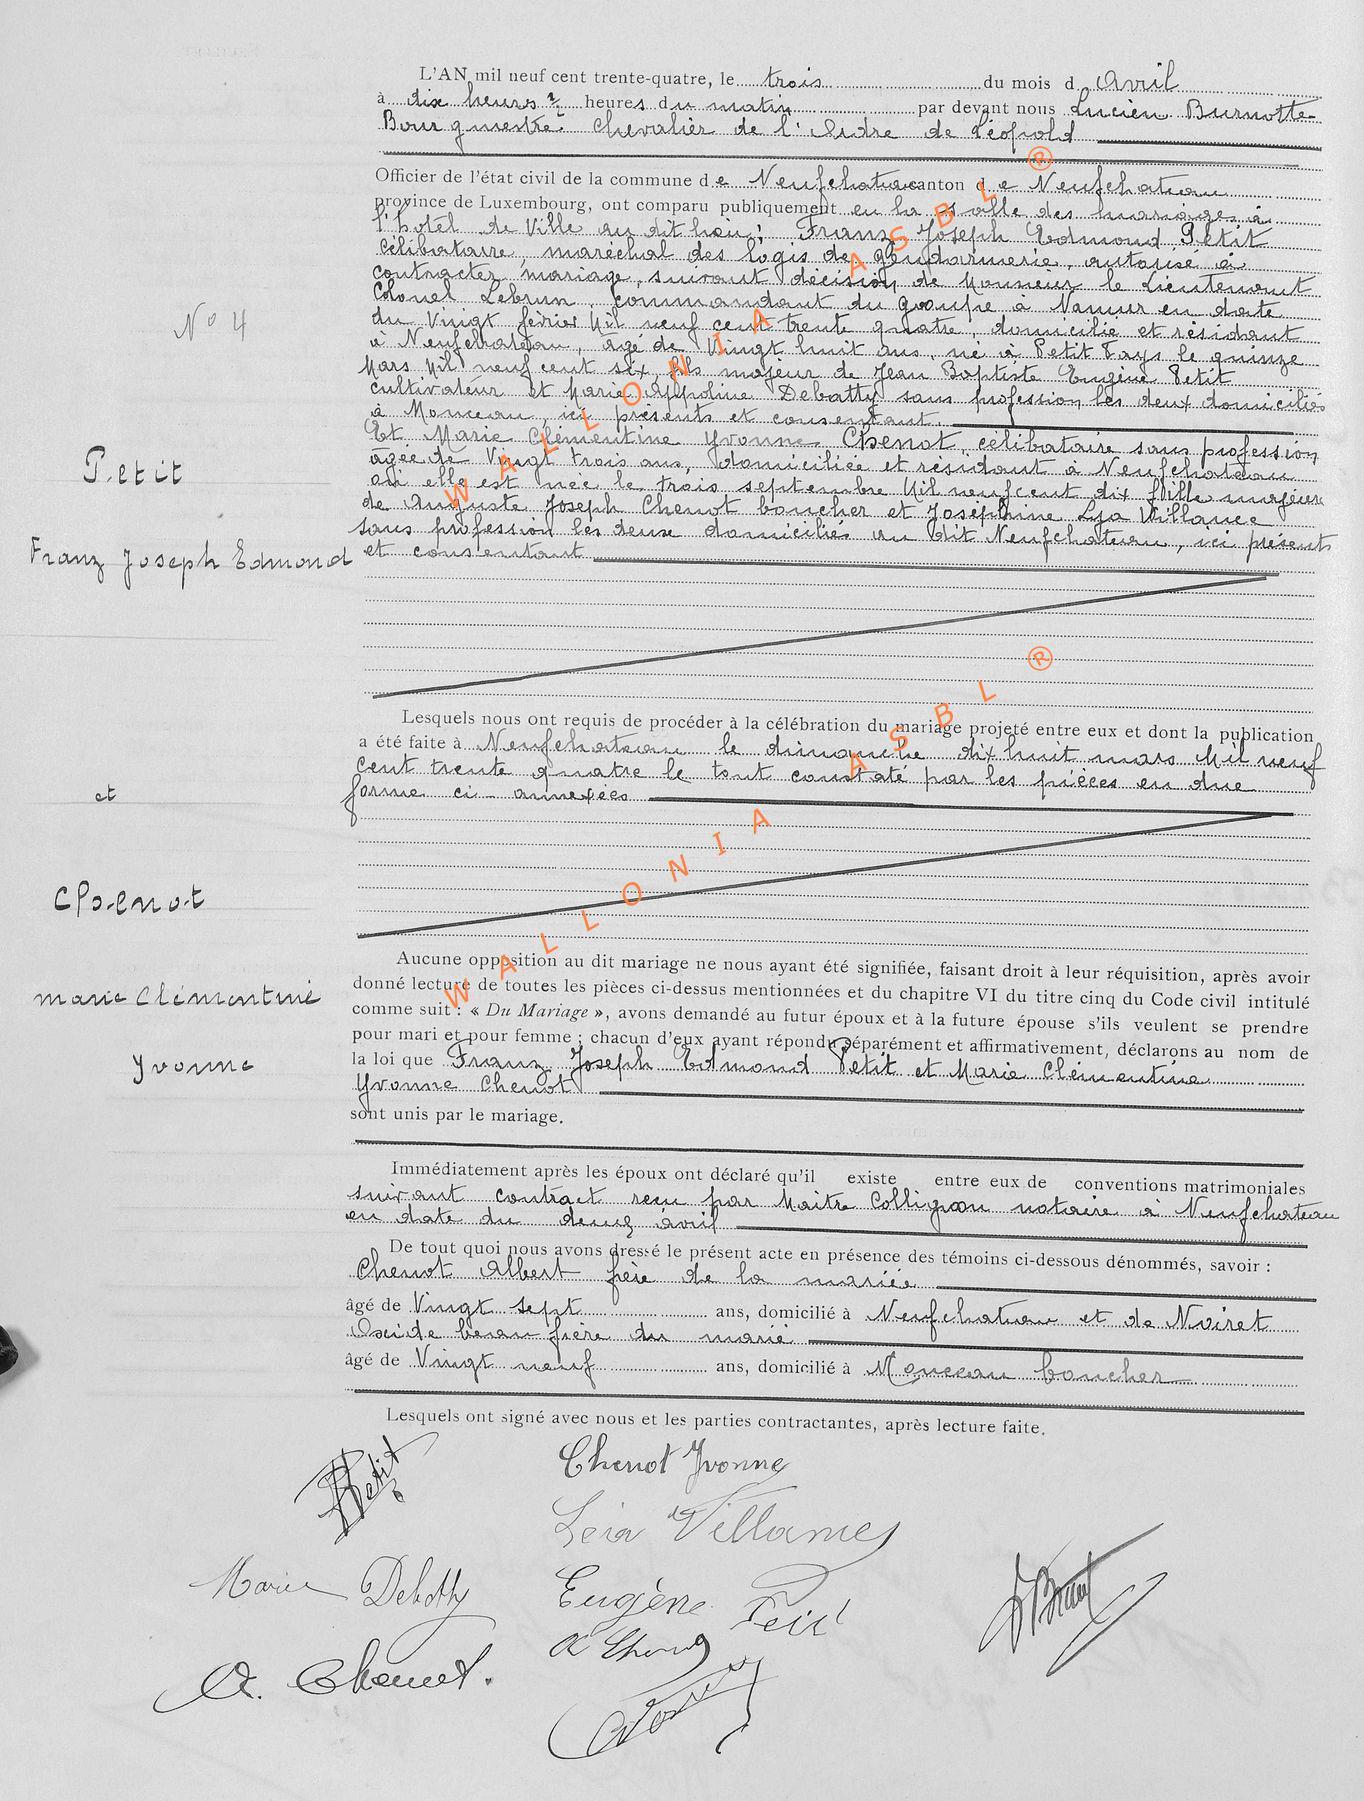 L'AN mil neuf cent trente-quatre, le trois du mois d Avril
à dix heures ½ heures du matin par devant nous Lucien Burnotte
Bourgmestre Chevalier de l'Ordre de Léopold
Officier de l'état civil de la commune de Neufchateau canton de Neufchateau
province de Luxembourg, ont comparu publiquement en la salle des mariages à
l'hotel de Ville au dit lieu: Franz Joseph Edmond Petit
célibataire, maréchal des logis de gendarmerie, autorisé à
contracter mariage, suivant décision de Monsieur le Lieutenant
Colonel Lebrun, commandant du groupe à Namur en date
du Vingt février Mil neuf cent trente quatre, domicilié et résidant
N° 4
à Neufchateau, agé de Vingt huit ans, né à Petit Fays le quinze
Mars Mil neuf cent six, fils majeur de Jean Baptiste Eugène Petit
cultivateur et Marie Appoline Debatty sans profession les deux domiciliés
à Monceau, ici présents et consentant
Et Marie Clémentine Yvonne Chenot, célibataire sans profession
agée de Vingt trois ans, domiciliée et résidant à Neufchateau
Petit
où elle est née le trois septembre Mil neuf cent dix fille majeure
de Auguste Joseph Chenot boucher et Joséphine Lya Villance
sans profession les deux domiciliés au dit Neufchateau, ici présents
Franz Joseph Edmond
et consentant
Lesquels nous ont requis de procéder à la célébration du mariage projeté entre eux et dont la publication
a été faite à Neufchateau le dimanche dix huit mars Mil neuf
cent trente quatre le tout constaté par les pièces en due
et
forme ci-annexées
Chenot
Aucune opposition au dit mariage ne nous ayant été signifiée, faisant droit à leur réquisition, après avoir
donné lecture de toutes les pièces ci-dessus mentionnées et du chapitre VI du titre cinq du Code civil intitulé
marie Clémentine
comme suit : « Du Mariage », avons demandé au futur époux et à la future épouse s'ils veulent se prendre
pour mari et pour femme ; chacun d'eux ayant répondu séparément et affirmativement, déclarons au nom de
Yvonne
la loi que Franz Joseph Edmond Petit et Marie Clémentine
Yvonne Chenot
sont unis par le mariage.
Immédiatement après les époux ont déclaré qu'il existe entre eux de conventions matrimoniales
suivant contract recu par Maitre Collignon notaire à Neufchateau
en date du deux avril
De tout quoi nous avons dressé le présent acte en présence des témoins ci-dessous dénommés, savoir :
Chenot Albert frère de la mariée
âgé de Vingt sept ans, domicilié à Neufchateau et de Noiret
beau frère du marié
âgé de Vingt neuf ans, domicilié à Monceau boucher
Lesquels ont signé avec nous et les parties contractantes, après lecture faite.
Petit
Chenot Yvonne
Marie Debatty
Eugène Petit
A. Chenot.
WALLONIA ASBL ®
WALLONIA ASBL ®